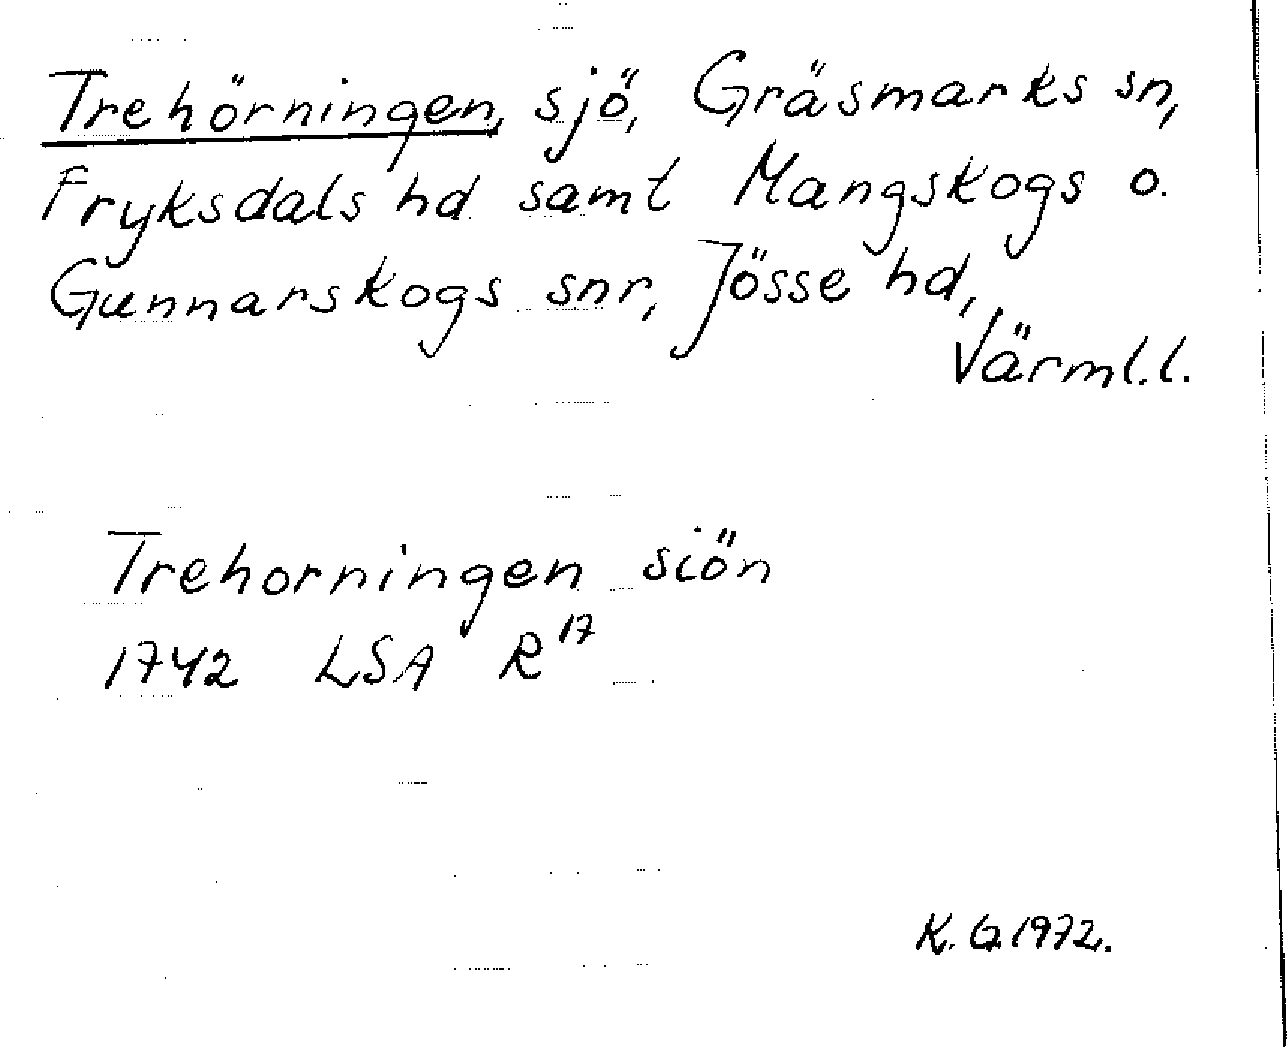 Trehörningen, sjö, Gräsmarks sn,
Fryksdals hd samt Mangskogs o.
Gunnarskogs snr, Jösse hd,
Värml.l.
Trehorningen siön
1742 LSA R 17
K.G.1972.